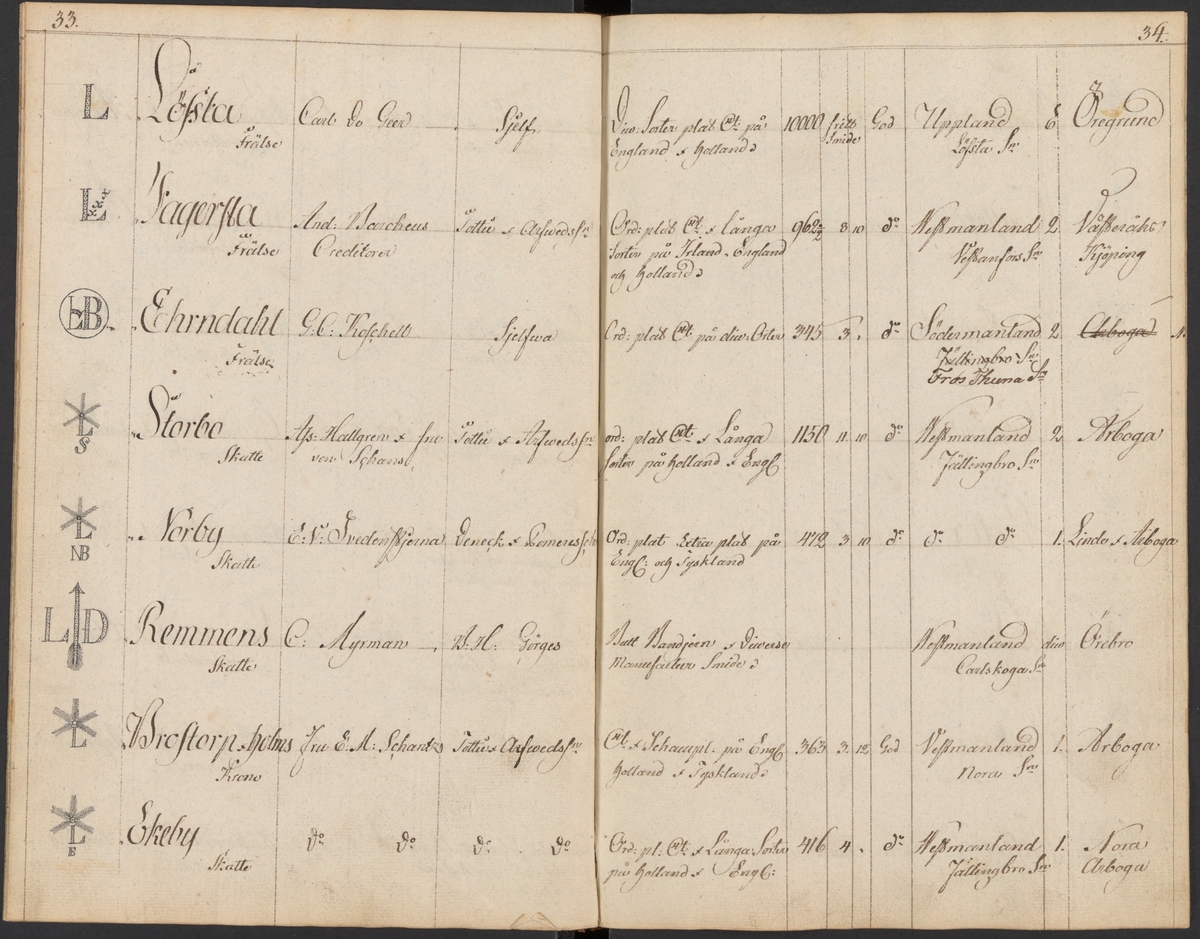 33.
34.
L Löfsta Carl De Geer Sjelf. Diw: Sorter plat &t: på 10000 fritt God Uppland 6 Öregrund
Frälse England & Holland Smide Löfsta Sn
L Fagersta And: Barcheus Tottie & Arfwedss: Ord: plat &t. & långa 962½ 8 10 do Westmanland 2 Wässeråhs
Frälse Creditorer Sorter på Irland, England Westanfors Sn Kjöping
och Holland
EB Ehrndahl G: C: Sjelfwa Ord: plat &t. på diw: Orter 345 3. do Södermanland 2 Arboga
Frälse Fällingbro Sn
Trös Thuna Sn
L
S Storbo Ass: Hallgren & fru Tottie & Arfwedss: ord: plat &t. & Långa 1150 11 10 do Westmanland 2 Arboga
Skatte von Schans Sorter på Holland & Engl: Fällingbro Sn
L
NB Norby E: N: Svedenstjerna Ord: plat Extra plat på 472 3 10 do do do 1. Linde & Arboga
Skatte Engl: och Tyskland
L D Remmens C: Myrman N. H: Görges Bult Bandjern & Diverse Westmanland diw Örebro
Skatte Manufactur Smide Carlskoga Sn
L Brostorp & Holms Fru E: M: Schantz Tottie & Arfwedss: &t. & Schaupl. på Engl: 363 3. 12 God Westmanland 1. Arboga
Krono Holland & Tyskland Nora Sn
L
E Ekeby do do do do Ord: pl: &t: & Långa Sorter 416 4. do Westmanland 1. Nora
Skatte på Holland & Engl: Fällingbro Sn Arboga